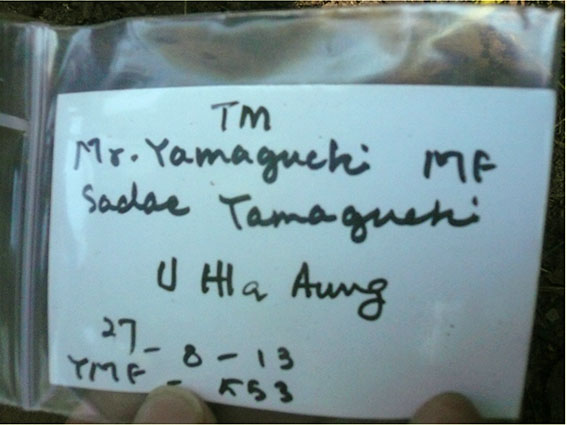 TM
Mr. Yamaguchi MF
Sadae Yamaguchi
U Hla Aung
27-8-13
YMF - K53